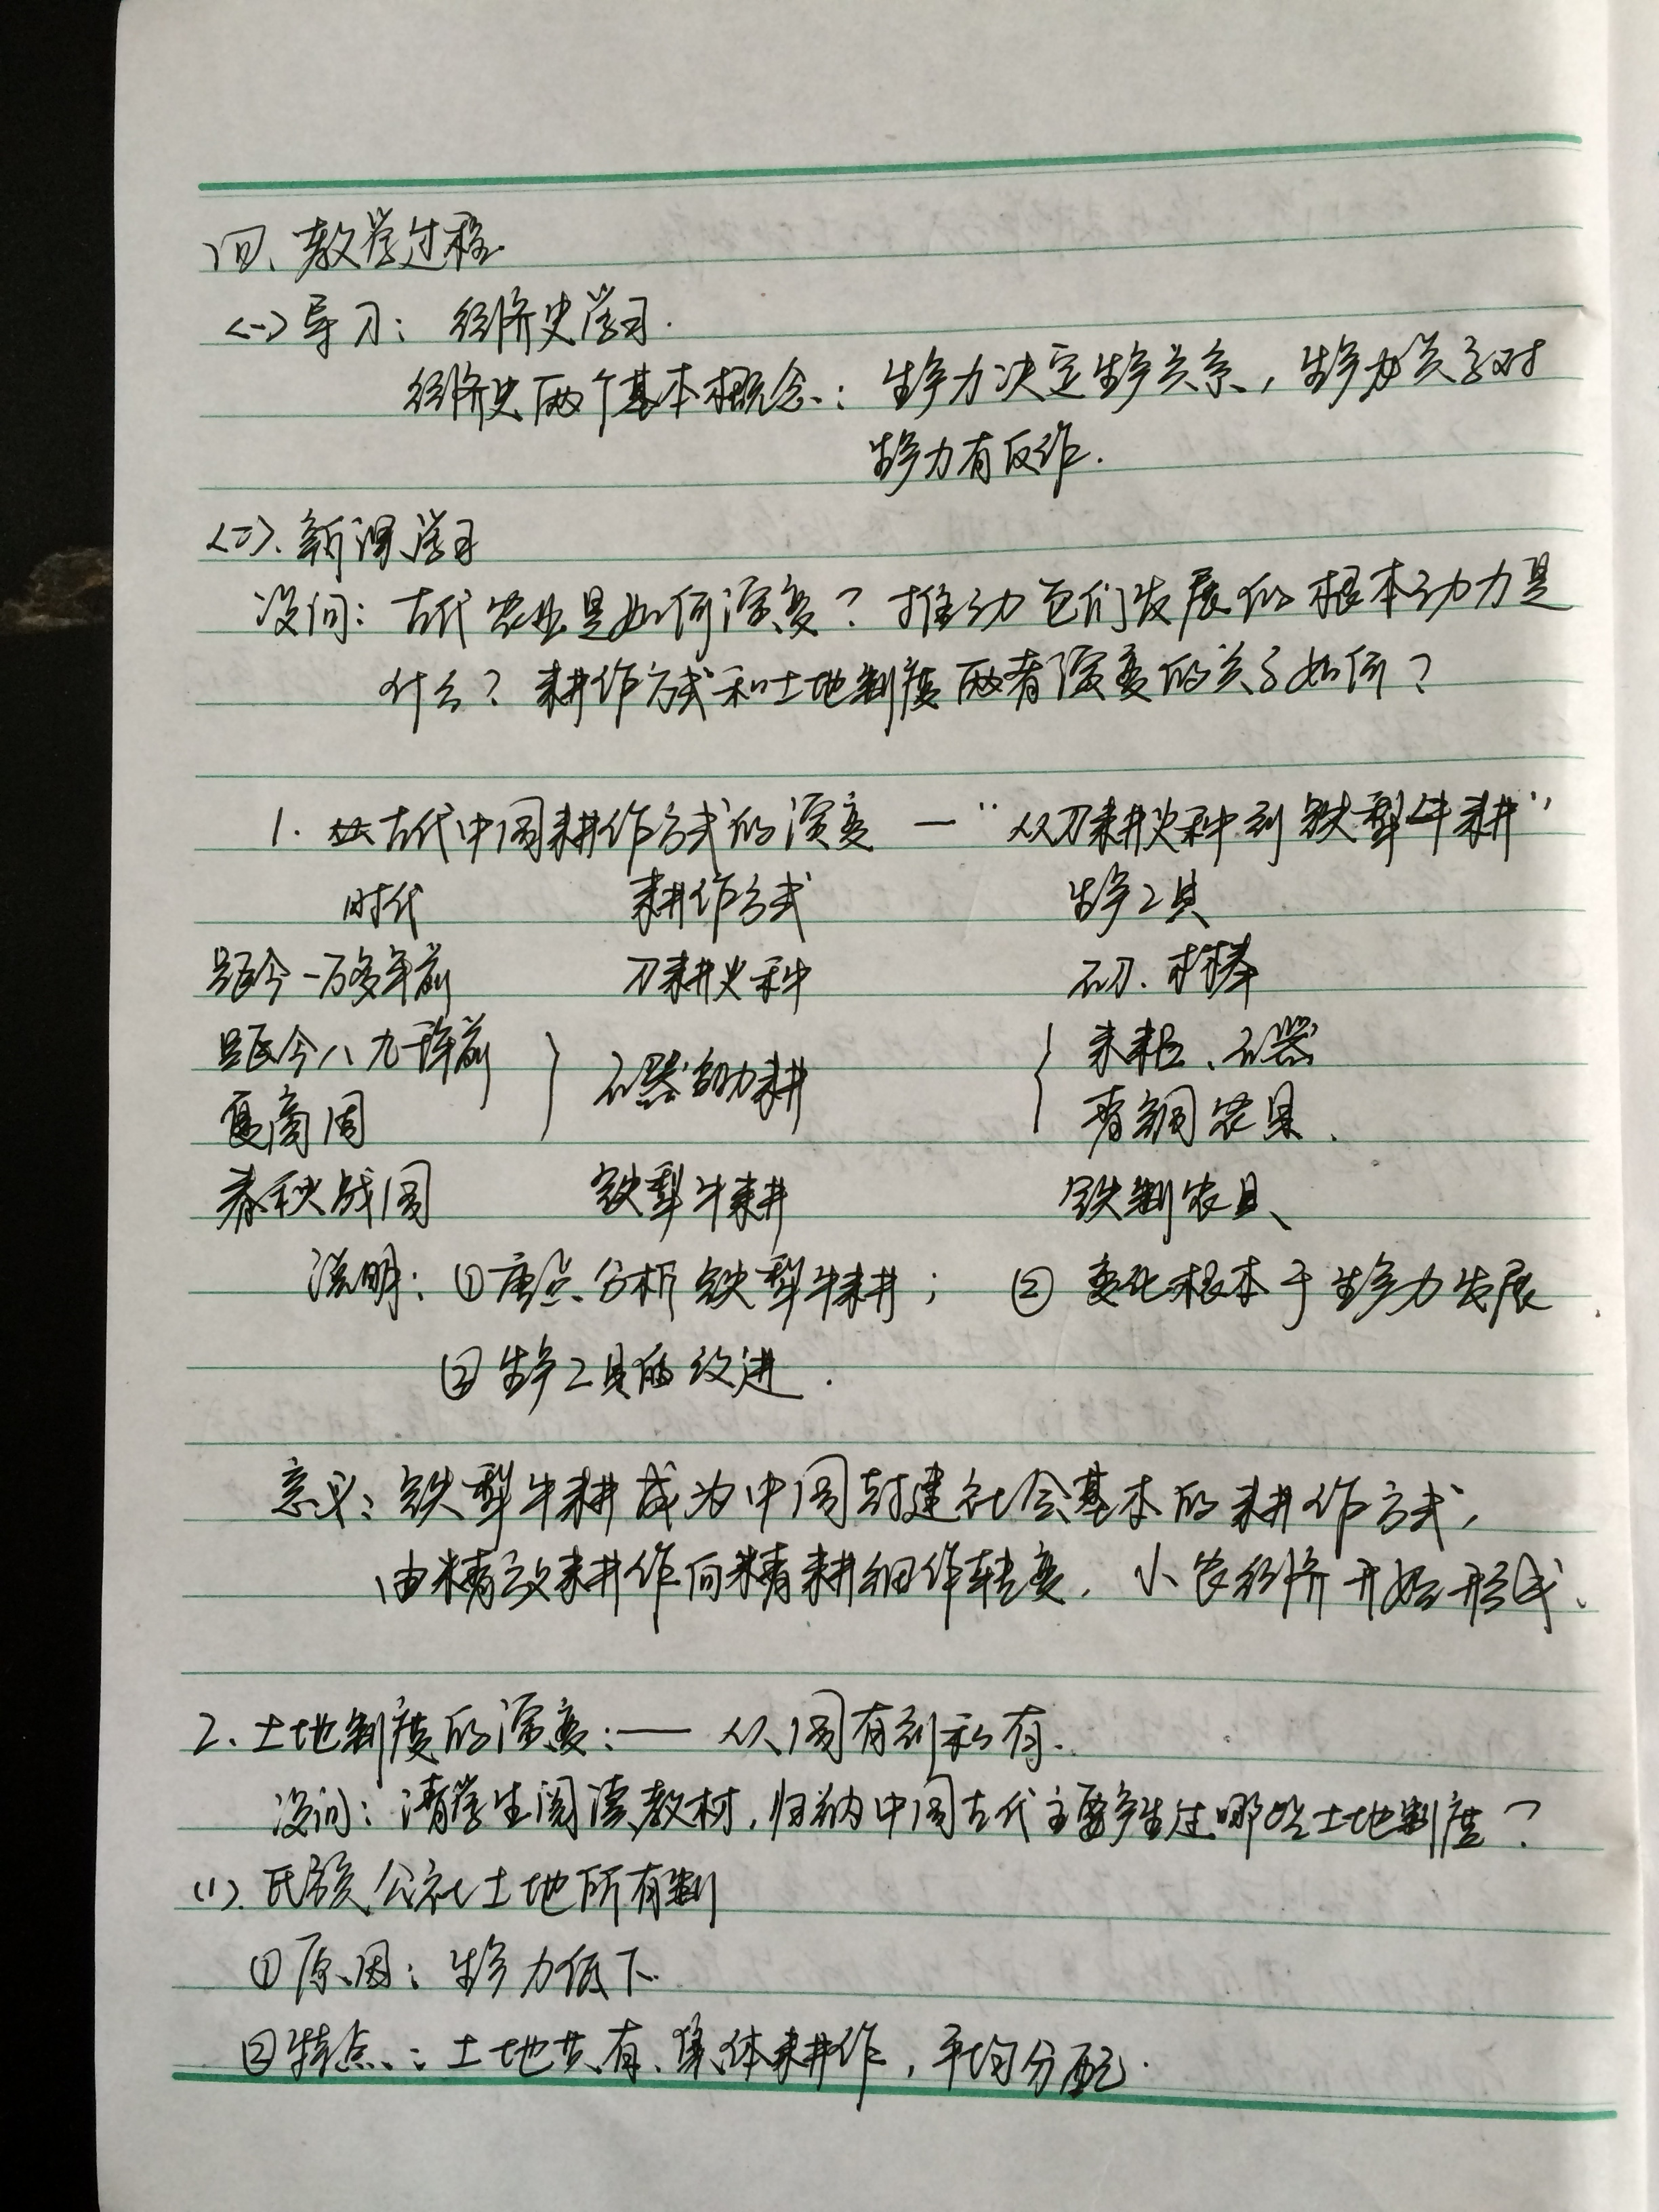 四、教学过程
<一>导习：经济史学习.
经济史两个基本概念：生产力决定生产关系，生产关系对
生产力有反作.
<二>、新课学习
设问：古代农业是如何演变？推动它们发展的根本动力是
什么？耕作方式和土地制度两者演变的关系如何？
1. 古代中国耕作方式的演变 — “从刀耕火种到铁犁牛耕”
时代 耕作方式 生产工具
距今一万多年前 刀耕火种 石刀、木棒
距今八九千年前 耒耜、石器
石器锄耕
夏商周 青铜农具、
春秋战国 铁犁牛耕 铁制农具、
说明：①重点分析铁犁牛耕； ② 变化根本于生产力发展.
②生产工具的改进.
意义：铁犁牛耕成为中国封建社会基本的耕作方式，
由精放耕作向精耕细作转变，小农经济开始形成、
2、土地制度的演变：—— 从国有到私有.
设问：请学生阅读教材，归纳中国古代主要产生过哪些土地制度？
(1)、氏族公社土地所有制
①原因：生产力低下.
②特点：土地共有、集体耕作，平均分配.